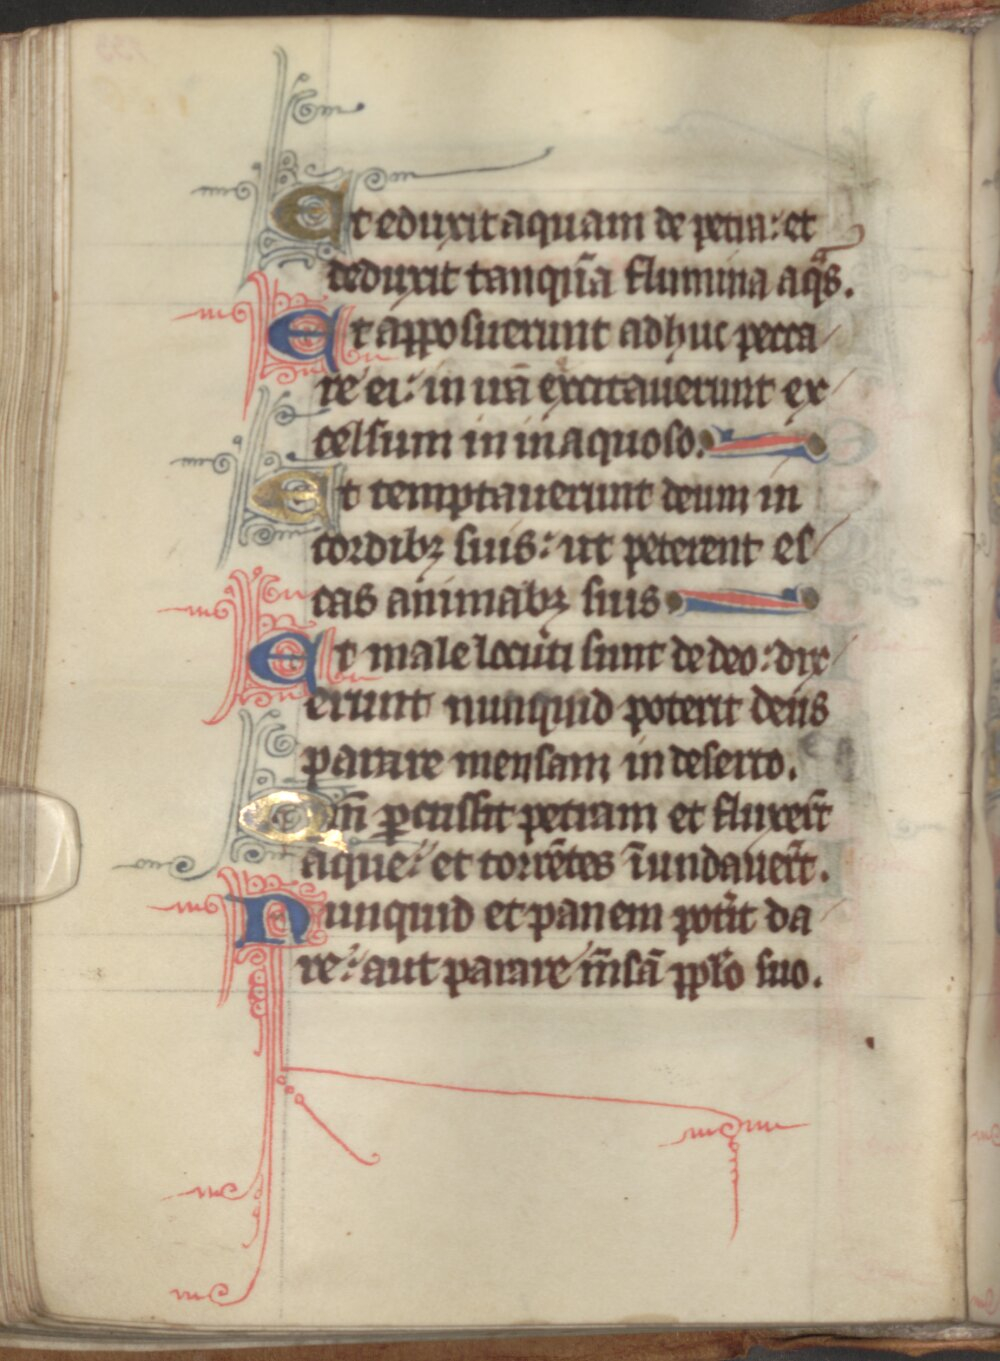 Et eduxit aquam de petra: et
deduxit tanqͣm flumina aqͣs.
Et apposuerunt adhuc pecca
re ei: in irā excitauerunt ex
celsum in inaquoso.
Et temptauerunt deum in
cordibꝫ suis: ut peterent es
cas animabꝫ suis
Et male locuti sunt de deo: dix
erunt nunquid poterit deus
parare mensam in deserto.
Qm̄ ꝑcussit petram et fluxer̄t
aque: et torrētes īundauer̄t.
Nunquid et panem pot͛it da
re: aut parare m̄sā pplo suo.